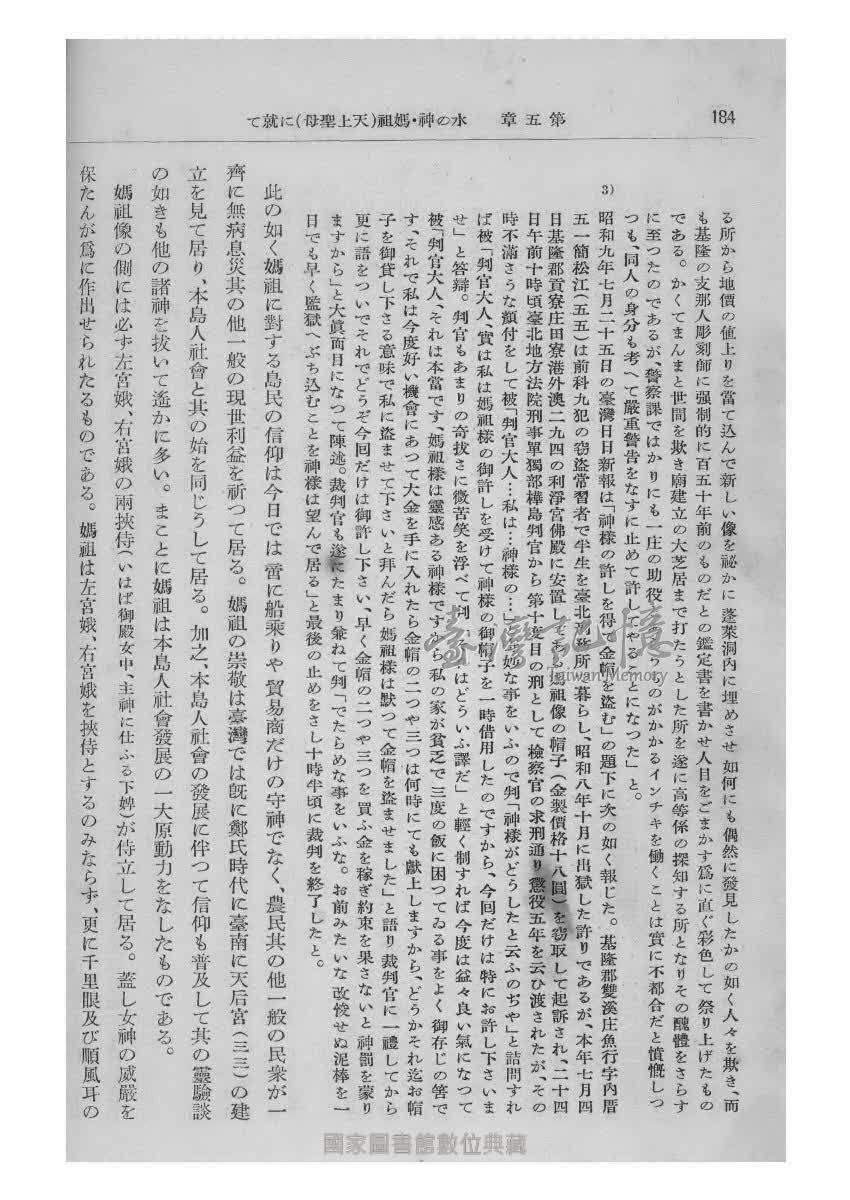 184
第五章　水の神・媽祖(天上聖母)に就て
る所から地價の値上りを當て込んで新しい像を祕かに蓬萊洞内に埋めさせ如何にも偶然に發見したかの如く人々を欺き、而
も基隆の支那人彫刻師に强制的に百五十年前のものだとの鑑定書を書かせ人目をごまかす爲に直ぐ彩色して祭り上げたもの
である。かくてまんまと世間を欺き廟建立の大芝居まで打たうとした所を遂に高等係の探知する所となりその醜體をさらす
に至つたのであるが、警察課ではかりにも一庄の助役
うのがかかるインチキを働くことは實に不都合だと憤慨しつ
つも、同人の身分も考へて嚴重警告をなすに止めて許してやることになつた」と。
3)
昭和九年七月二十五日の臺灣日日新報は「神樣の許しを得て金帽を盜む」の題下に次の如く報じた。基隆郡雙溪庄魚行字内厝
五一簡松江(五五)は前科九犯の窃盜常習者で半生を臺北
務所
暮らし、昭和八年十月に出獄した許りであるが、本年七月四
日基隆郡貢寮庄田寮港外澳二九四の利淨宮佛殿に安置してある媽祖像の帽子(金製價格十八圓)を窃取して起訴され、二十四
日午前十時頃臺北地方法院刑事單獨部樺島判官から第十度目の刑として檢察官の求刑通り懲役五年を云ひ渡されたが、その
時不滿さうな顏付をして被「判官大人…私は…神樣の…し
妙な事をいふので判「神樣がどうしたと云ふのぢや」と詰問すれ
ば被「判官大人、實は私は媽祖樣の御許しを受けて神樣の御帽子を一時借用したのですから、今回だけは特にお許し下さいま
せ」と答辯。判官もあまりの奇拔さに微苦笑を浮べて判「
はどういふ譯だ」と輕く制すれば今度は益々良い氣になつて
被「判官大人、それは本當です、媽祖樣は靈感ある神樣ですから私の家が貧乏で三度の飯に困つてゐる事をよく御存じの筈で
す、それで私は今度好い機會にあつて大金を手に入れたら金帽の二つや三つは何時にても獻上しますから、どうかそれ迄お帽
子を御貸し下さる意味で私に盜ませて下さいと拜んだら媽祖樣は默つて金帽を盜ませました」と語り裁判官に一禮してから
更に語をついでそれでどうぞ今回だけは御許し下さい、早く金帽の二つや三つを買ふ金を稼ぎ約束を果さないと神罰を蒙り
ますから」と大眞面目になつて陳述。裁判官も遂にたまり兼ねて判「でたらめな事をいふな。お前みたいな改悛せぬ泥棒を一
日でも早く監獄へぶち込むことを神樣は望んで居る」と最後の止めをさし十時半頃に裁判を終了したと。
此の如く媽祖に對する島民の信仰は今日では啻に船乘りや貿易商だけの守神でなく、農民其の他一般の民衆が一
齊に無病息災其の他一般の現世利益を祈つて居る。媽祖の崇敬は臺灣では既に鄭氏時代に臺南に天后宮(三三)の建
立を見て居り、本島人社會と其の始を同じうして居る。加之、本島人社會の發展に伴つて信仰も普及して其の靈驗談
の如きも他の諸神を拔いて遙かに多い。まことに媽祖は本島人社會發展の一大原動力をなしたものである。
媽祖像の側には必ず左宮娥、右宮娥の兩挾侍(いはば御殿女中、主神に仕ふる下婢)が侍立して居る。蓋し女神の威嚴を
保たんが爲に作出せられたるものである。媽祖は左宮娥、右宮娥を挾侍とするのみならず、更に千里眼及び順風耳の
臺灣記憶
Taiwan Memory
國家圖書館數位典藏